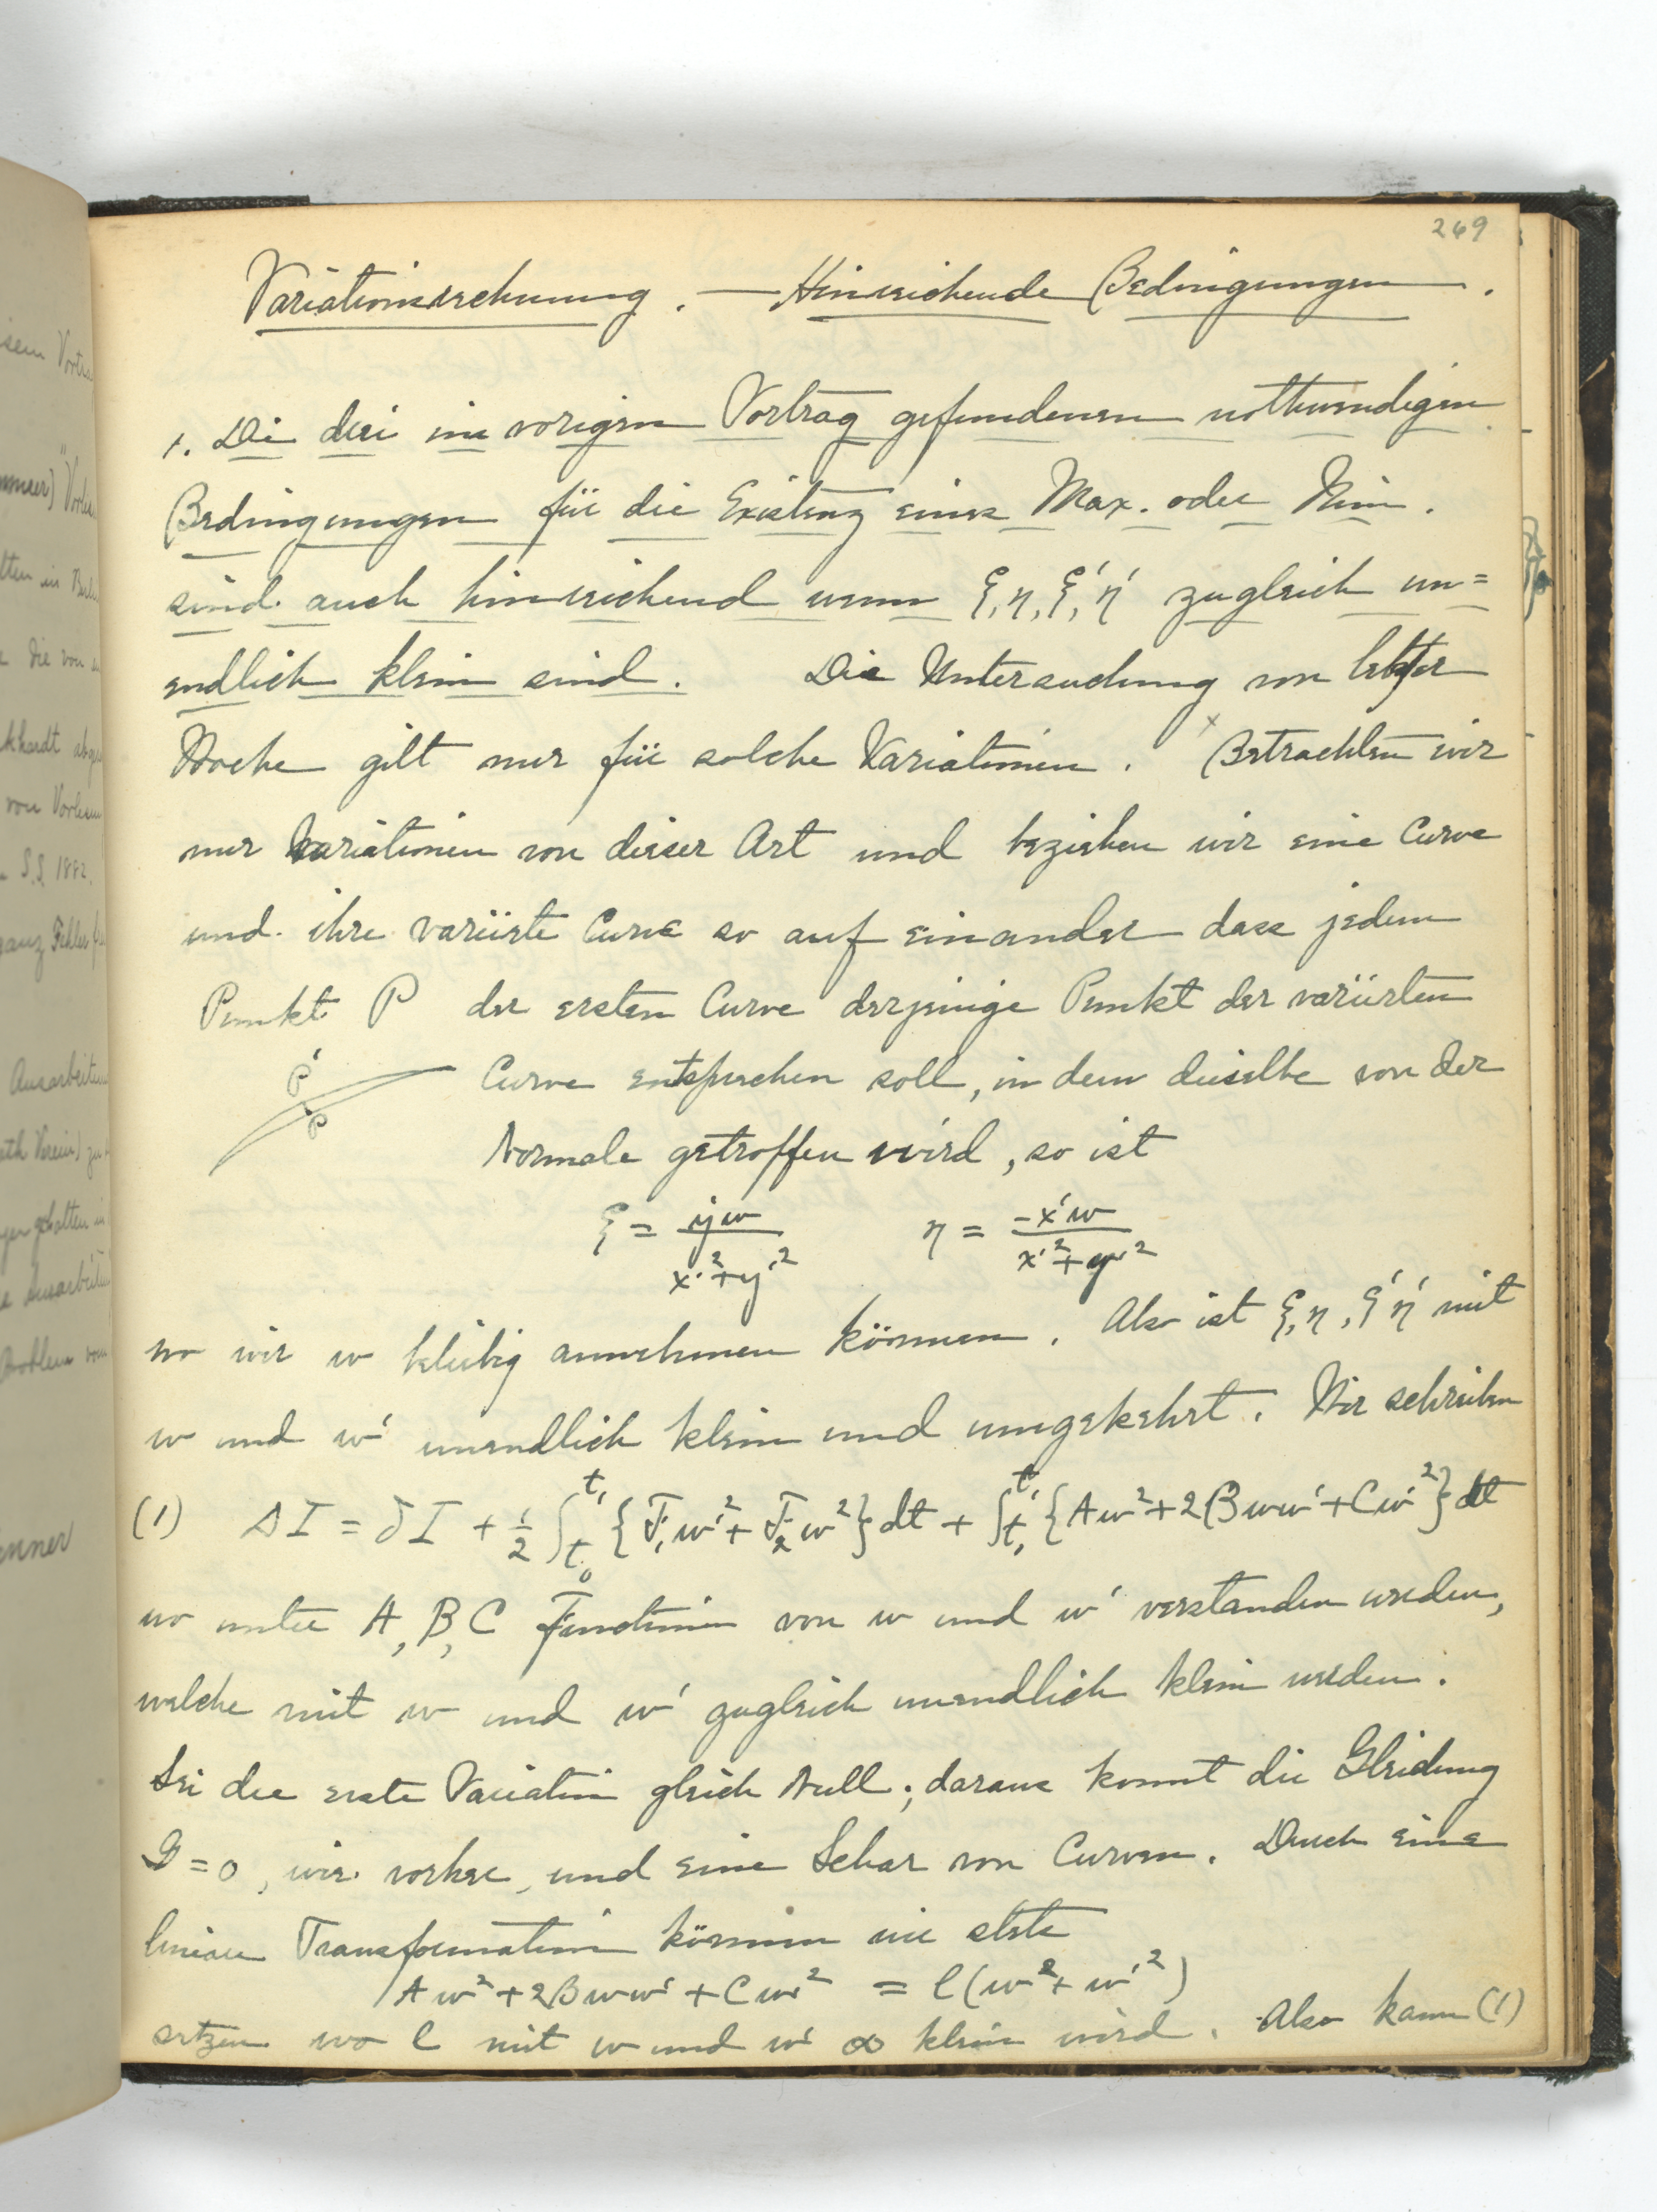 269
Variationsrechnung. — Hinreichende Bedingungen.
1. Die drei im vorigen Vortrag gefundenen nothwendigen
Bedingungen für die Existenz eines Max. oder Min.
sind auch hinreichend wenn ξ, η, ξ', η' zugleich un=
endlich klein sind. Die Untersuchung von letzter
Woche gilt nur für solche Variationen. Betrachten wir
nur Variationen von dieser Art und beziehen wir eine Curve
und ihre variirte Curve so auf einander dass jedem
Punkt P der ersten Curve derjenige Punkt der variirten
P'
P
Curve entsprechen soll, in dem dieselbe von der
Normale getroffen wird, so ist
ξ = y'w / x'²+y'² η = -x'w / x'²+y'²
wo wir w beliebig annehmen können. Also ist ξ, η, ξ' η' mit
w und w' unendlich klein und umgekehrt. Wir schreiben
(1) ΔI = δI + ½ ∫_{t₀}^{t₁} {F₁w'² + F₂w²}dt + ∫_{t₀}^{t₁} {Aw² + 2Bww' + Cw'²}dt
wo unter A, B, C Functionen von w und w' verstanden werden,
welche mit w und w' zugleich unendlich klein werden.
Sei die erste Variation gleich Null; daraus kommt die Gleichung
G = 0, wie vorher, und eine Schar von Curven. Durch eine
lineare Transformation können wir stets
Aw² + 2Bww' + Cw'² = l(w² + w'²)
setzen wo l mit w und w' ∞ klein wird. Also kann (1)
sem Vortra
ten in Berlin
die von
khardt abge
von Vorlesun
S.S. 1882.
ganz Fehler
Ausarbeitun
ath Verein) zu
gehalten in
Ausarbeitun
Problem vom